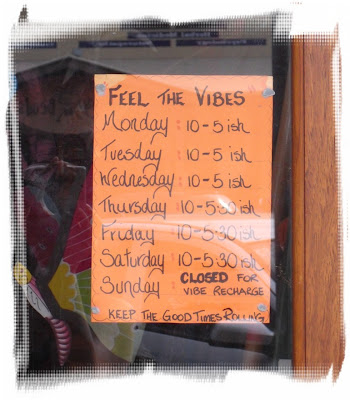 FEEL THE VIBES
Monday : 10-5 ish
Tuesday : 10-5 ish
Wednesday : 10-5 ish
Thursday : 10-5:30 ish
Friday : 10-5:30 ish
Saturday : 10-5:30 ish
Sunday : CLOSED FOR
VIBE RECHARGE
KEEP THE GOOD TIMES ROLLING